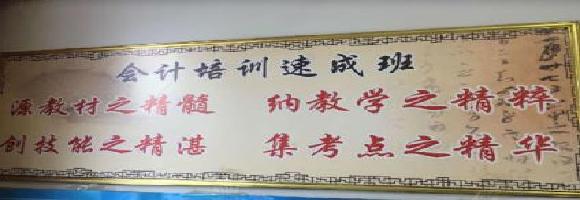 会计培训速成班
源教材之精髓 纳教学之精粹
创技能之精湛 集考点之精华